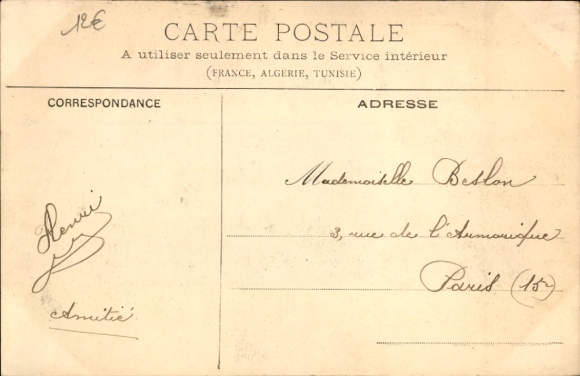 12€
CARTE POSTALE
A utiliser seulement dans le Service intérieur
(FRANCE, ALGÉRIE, TUNISIE)
CORRESPONDANCE
ADRESSE
Mademoiselle Beslon
3, rue de l'Armorique
Paris (15e)
Henri
Amitié